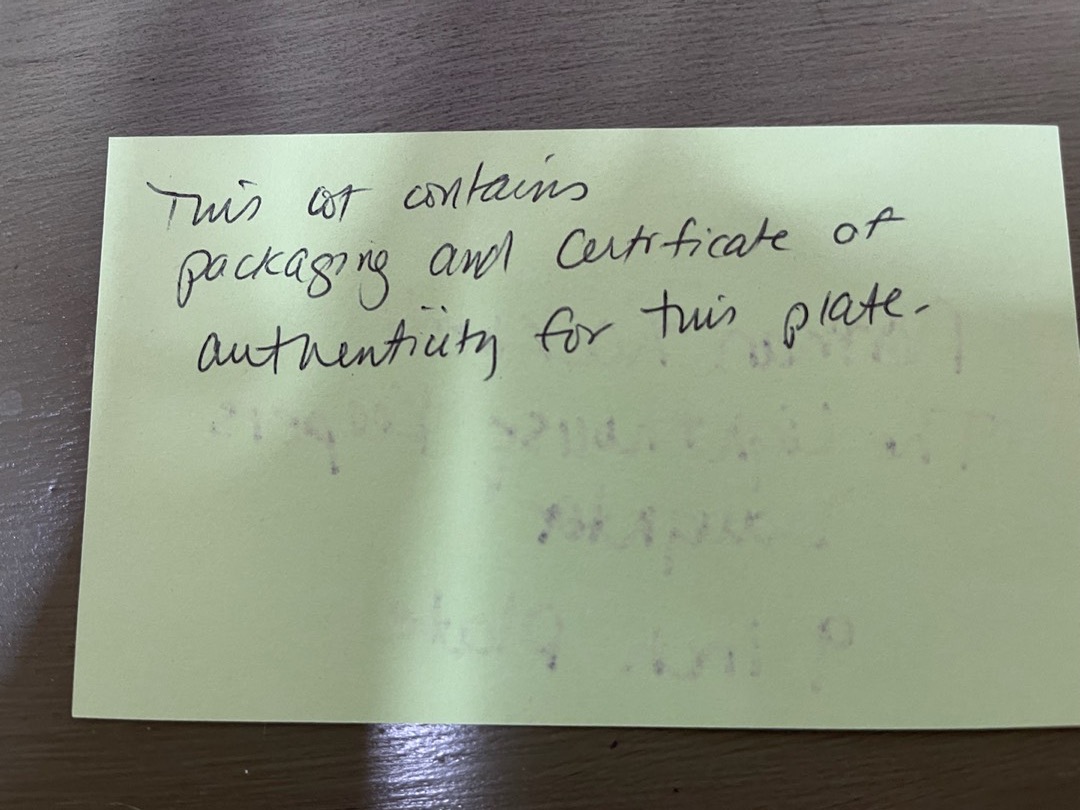 This lot contains
packaging and Certificate of
authenticity for this plate.